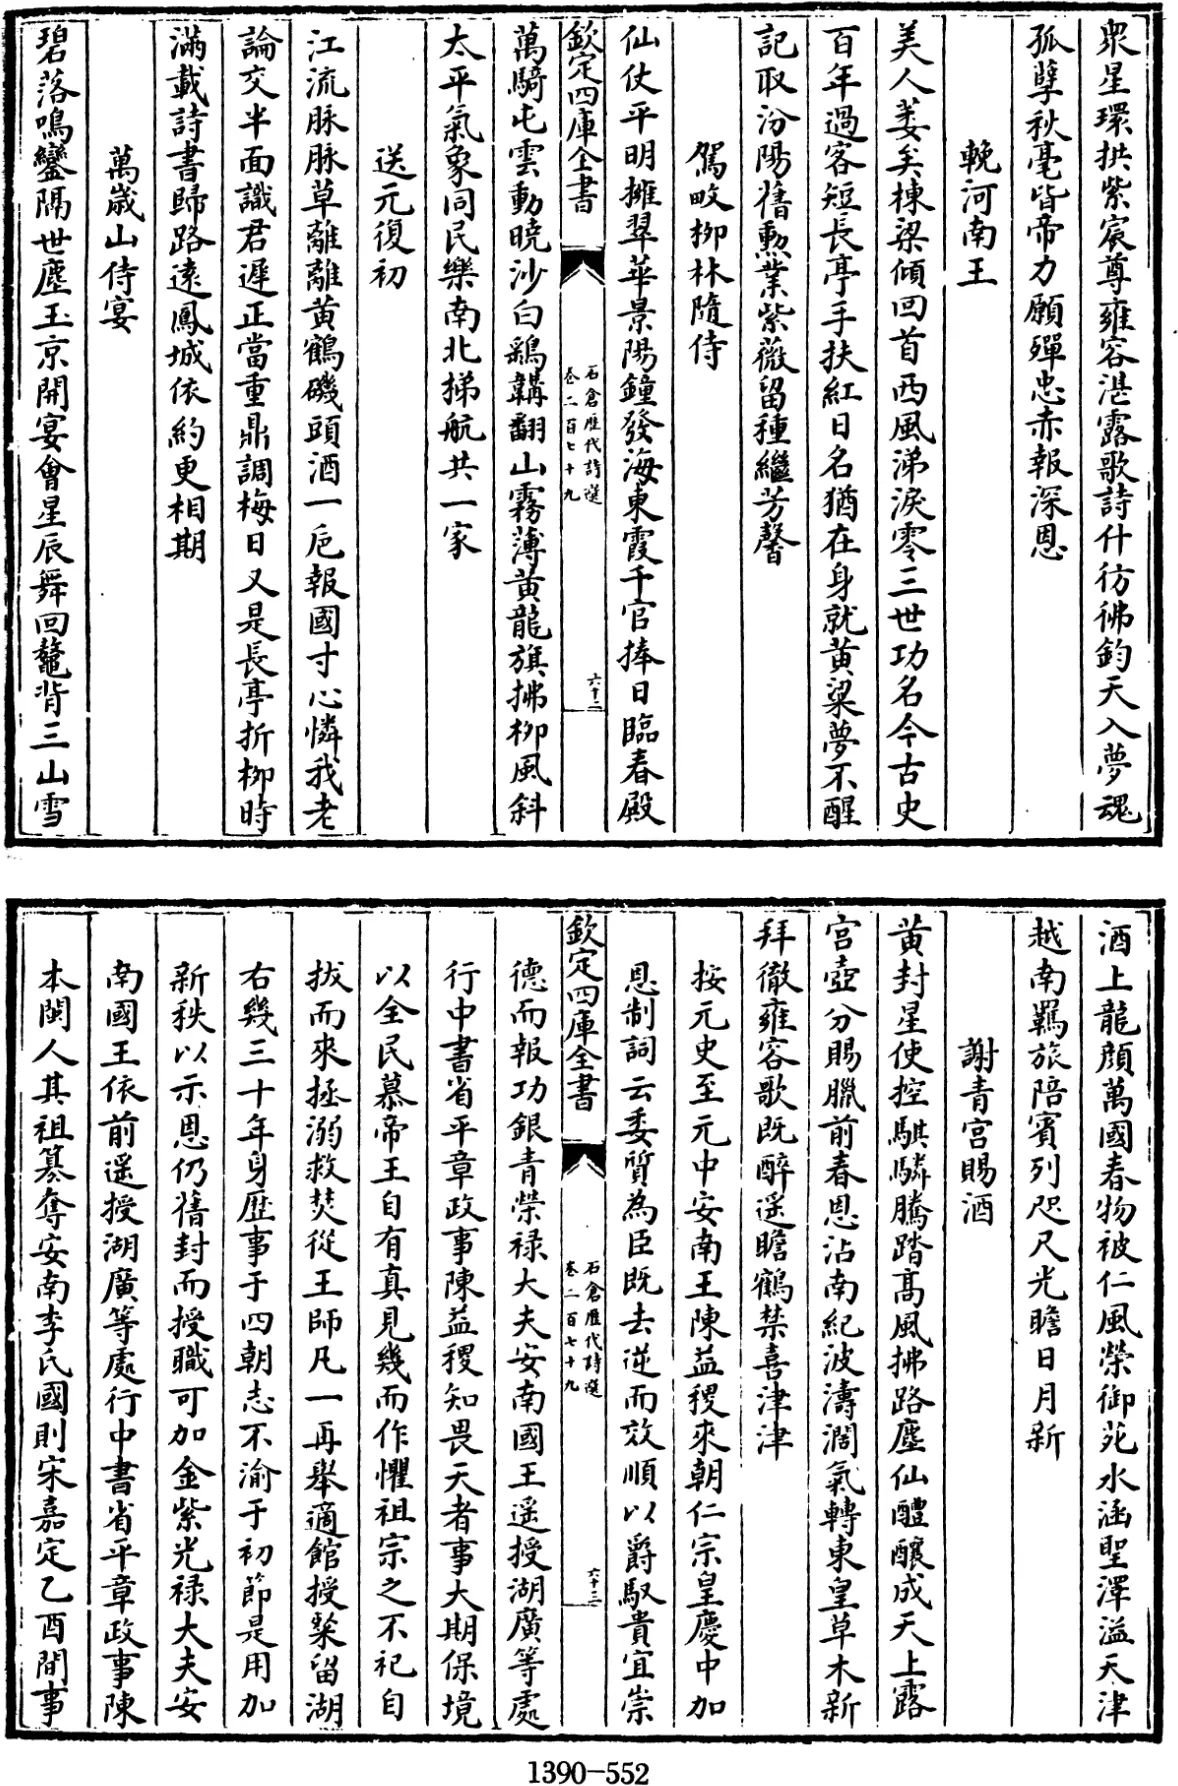 衆星環拱紫宸尊雍容湛露歌詩什彷彿鈞天入夢魂
孤孽秋毫皆帝力願殫忠赤報深恩
輓河南王
美人萎矣棟梁傾回首西風涕淚零三世功名今古史
百年過客短長亭手扶紅日名猶在身就黃粱夢不醒
記取汾陽舊勲業紫薇留種繼芳馨
駕畋柳林隨侍
仙仗平明擁翠華景陽鐘發海東霞千官捧日臨春殿
欽定四庫全書
石倉歷代詩選
卷二百七十九
六十二
萬騎屯雲動曉沙白鷂韝翻山霧薄黃龍旗拂柳風斜
太平氣象同民樂南北梯航共一家
送元復初
江流脉脉草離離黃鶴磯頭酒一巵報國寸心憐我老
論交半面識君遲正當重鼎調梅日又是長亭折柳時
滿載詩書歸路遠鳳城依約更相期
萬歲山侍宴
碧落鳴鑾隔世塵玉京開宴會星辰舞回鼇背三山雪
酒上龍顔萬國春物被仁風榮御苑水涵聖澤溢天津
越南羈旅陪賓列咫尺光瞻日月新
謝青宮賜酒
黃封星使控騏驎騰踏髙風拂路塵仙醴釀成天上露
宮壺分賜臘前春恩沾南紀波濤濶氣轉東皇草木新
拜徹雍容歌既醉遥瞻鶴禁喜津津
按元史至元中安南王陳益稷來朝仁宗皇慶中加
恩制詞云委質為臣既去逆而效順以爵馭貴宜崇
欽定四庫全書
石倉歷代詩選
卷二百七十九
六十三
德而報功銀青榮禄大夫安南國王遥授湖廣等處
行中書省平章政事陳益稷知畏天者事大期保境
以全民慕帝王自有真見幾而作懼祖宗之不祀自
拔而來拯溺救焚從王師凡一再舉適館授粲留湖
右幾三十年身歴事于四朝志不渝于初節是用加
新秩以示恩仍舊封而授職可加金紫光禄大夫安
南國王依前遥授湖廣等處行中書省平章政事陳
本閩人其祖簒奪安南李氏國則宋嘉定乙酉間事
1390-552